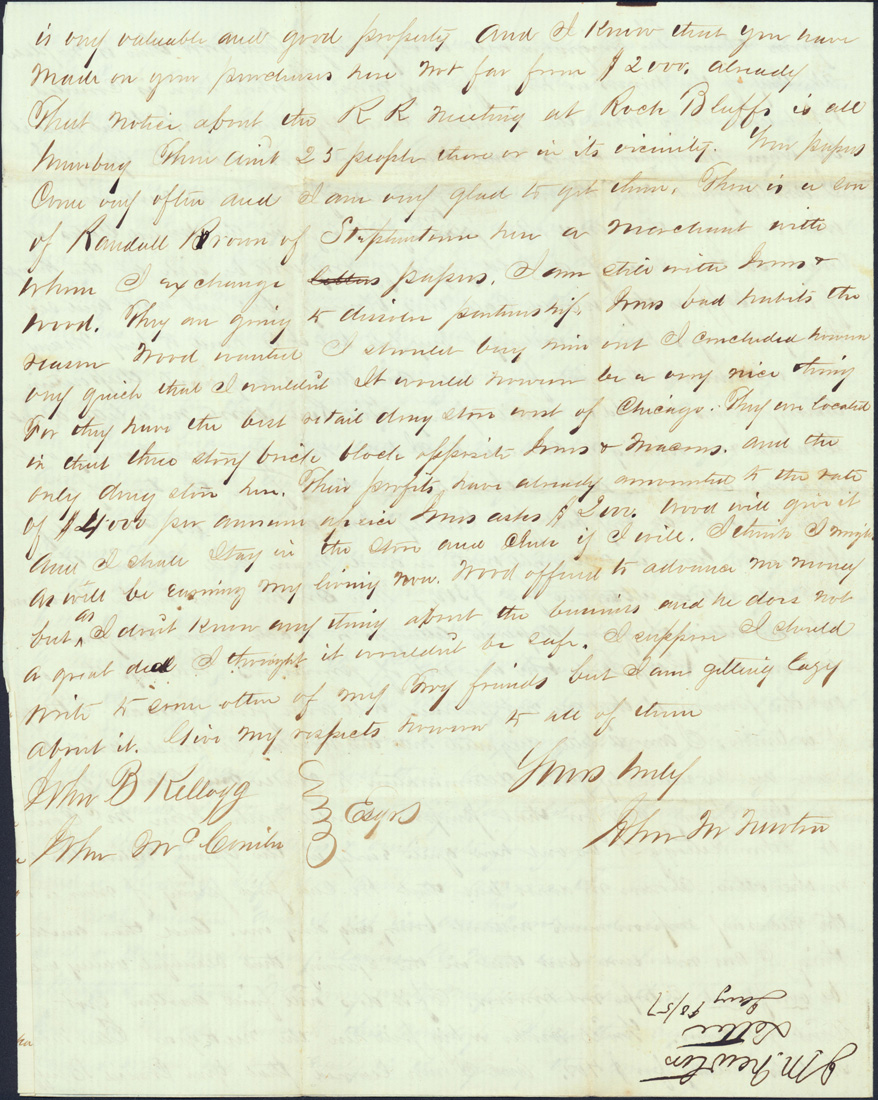 is very valuable and good property And I know that you have
made on your purchases here not far from $2000. already
That notice about the R R meeting at Rock Bluffs is all
humbug There aint 25 people there or in its vicinity. Your papers
Come very often and I am very glad to get them. There is a son
of Randall Brown of Stephentown here a merchant with
whom I exchange letters papers. I am still with &
Wood. They are going to dissolve partnership. bad habits the
reason Wood wanted I should buy him out I concluded however
very quick that I wouldn't It would however be a very nice thing
For they have the best retail drug store west of Chicago. They are located
in that three story brick block opposite & and the
only drug store here. Their profits have already amounted to the rate
of $4000 per annum apiece asks $ Wood will give it
And I shall stay in the store and Clerk if I will. I think I might
as well be earning my living now. Wood offered to advance me money
but as I don't know any thing about the business and he does not
a great deal I thought it wouldn't be safe. I suppose I should
write to some other of my Troy friends but I am getting lazy
about it. Give my respects however to all of them
Yours truly
John B Kellogg
Esqrs
John Mc
John M Newton
J M. Newton
Letter
Jany 18/57